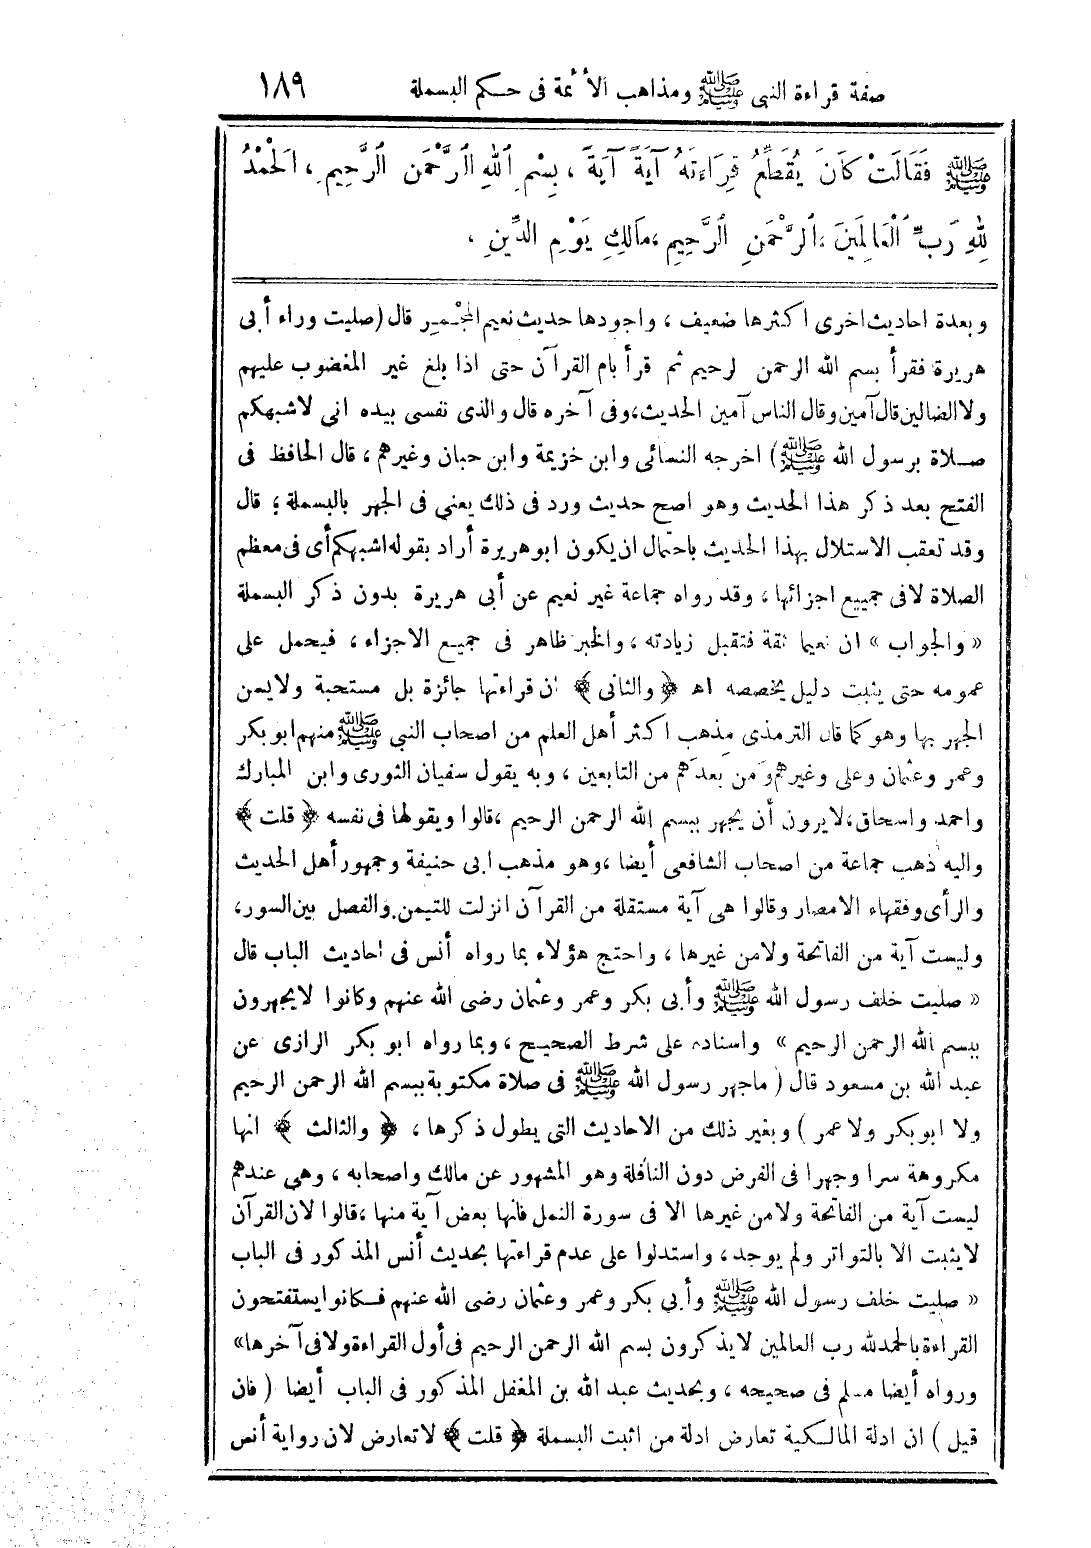 صفة قراءة النبى ﷺ ومذاهب الأئمة فى حكم البسملة ١٨٩
ﷺ فَقَالَتْ كَانَ يُقَطِّعُ قِرَاءَتَهُ آيَةً آيَةً ، بِسْمِ ٱللهِ ٱلرَّحْمَنِ ٱلرَّحِيمِ ، اَلْحَمْدُ
لِلهِ رَبِّ ٱلْعَالَمِينَ ، ٱلرَّحْمَنِ ٱلرَّحِيمِ ، مَالِكِ يَوْمِ الدِّينِ ،
وبعدة احاديث اخرى اكثرها ضعيف ، واجودها حديث نعيم المُجْمِر قال (صليت وراء أبى
هريرة فقرأ بسم الله الرحمن لرحيم ثم قرأ بام القرآن حتى اذا بلغ غير المغضوب عليهم
ولا الضالين قال آمين وقال الناس آمين الحديث، وفى آخره قال والذى نفسى بيده انى لاشبهكم
صلاة برسول الله ﷺ) اخرجه النسائى وابن خزيمة وابن حبان وغيرهم ، قال الحافظ فى
الفتح بعد ذكر هذا الحديث وهو اصح حديث ورد فى ذلك يعنى فى الجهر بالبسملة ؛ قال
وقد تعقب الاستلال بهذا الحديث باحتمال ان يكون ابو هريرة أراد بقوله اشبهكم أى فى معظم
الصلاة لا فى جمييع اجزائها ، وقد رواه جماعة غير نعيم عن أبى هريرة بدون ذكر البسملة
« والجواب » ان نعيما ثقة فتقبل زيادته ، والخبر ظاهر فى جميع الاجزاء ، فيحمل على
عمومه حتى يثبت دليل يخصصه اﻫ ﴿ والثانى ﴾ ان قراءتها جائزة بل مستحبة ولا يسن
الجهر بها وهو كما قال الترمذى مذهب اكثر أهل العلم من اصحاب النبى ﷺ منهم ابو بكر
وعمر وعثمان وعلى وغيرهم ومن بعدهم من التابعين ، وبه يقول سفيان الثورى وابن المبارك
واحمد واسحاق، لا يرون أن يجهر ببسم الله الرحمن الرحيم ، قالوا ويقولها فى نفسه ﴿ قلت ﴾
واليه ذهب جماعة من اصحاب الشافعى أيضا ، وهو مذهب ابى حنيفة وجمهور أهل الحديث
والرأى وفقهاء الامصار وقالوا هى آية مستقلة من القرآن انزلت للتيمن والفصل بين السور،
وليست آية من الفاتحة ولا من غيرها ، واحتج هؤلاء بما رواه أنس فى احاديث الباب قال
« صليت خلف رسول الله ﷺ وأبى بكر وعمر وعثمان رضى الله عنهم وكانوا لا يجهرون
ببسم الله الرحمن الرحيم » واسناده على شرط الصحيح ، وبما رواه ابو بكر الرازى عن
عبد الله بن مسعود قال ( ما جهر رسول الله ﷺ فى صلاة مكتوبة ببسم الله الرحمن الرحيم
ولا ابو بكر ولا عمر ) وبغير ذلك من الاحاديث التى يطول ذكرها ، ﴿ والثالث ﴾ انها
مكروهة سرا وجهرا فى الفرض دون النافلة وهو المشهور عن مالك واصحابه ، وهى عندهم
ليست آية من الفاتحة ولا من غيرها الا فى سورة النمل فانها بعض آية منها ، قالوا لان القرآن
لا يثبت الا بالتواتر ولم يوجد، واستدلوا على عدم قراءتها بحديث أنس المذكور فى الباب
« صليت خلف رسول الله ﷺ وأبى بكر وعمر وعثمان رضى الله عنهم فكانوا يستفتحون
القراءة بالحمد لله رب العالمين لا يذكرون بسم الله الرحمن الرحيم فى أول القراءة ولا فى آخرها»
ورواه أيضا مسلم فى صحيحه ، وبحديث عبد الله بن المغفل المذكور فى الباب أيضا ( فان
قيل ) ان ادلة المالكية تعارض ادلة من اثبت البسملة ﴿ قلت ﴾ لا تعارض لان رواية أنس